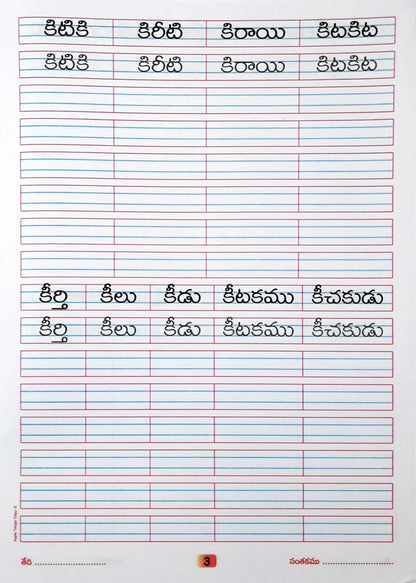 కిటికి కిరీటి కిరాయి కిటకిట
కిటికి కిరీటి కిరాయి కిటకిట
కీర్తి కీలు కీడు కీటకము కీచకుడు
కీర్తి కీలు కీడు కీటకము కీచకుడు
తేది ........................ 3 సంతకము ........................